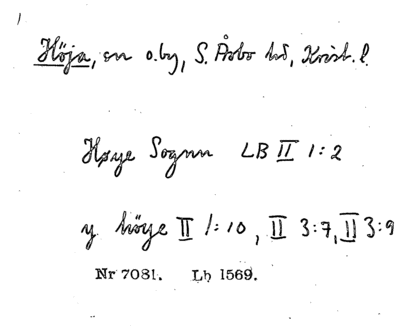 Höja, sn o. by, S. Åsbo hd, Krist. l.
Høye Sognn LB II 1:2
y höye II 1:10, II 3:7, II 3:9
Nr 7081. Lh 1569.